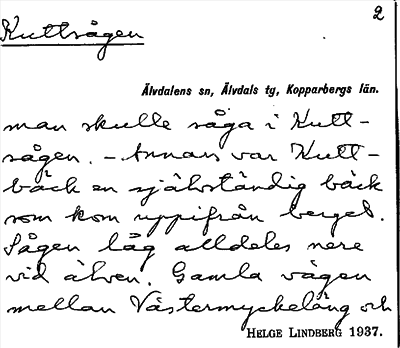 2
Kuttsågen
Älvdalens sn, Älvdals tg, Kopparbergs län.
man skulle såga i Kutt-
sågen. - Annars var Kutt-
bäck en självständig bäck
som kom uppifrån berget.
Sågen låg alldeles nere
vid älven. Gamla vägen
mellan Västermyckeläng och
HELGE LINDBERG 1937.